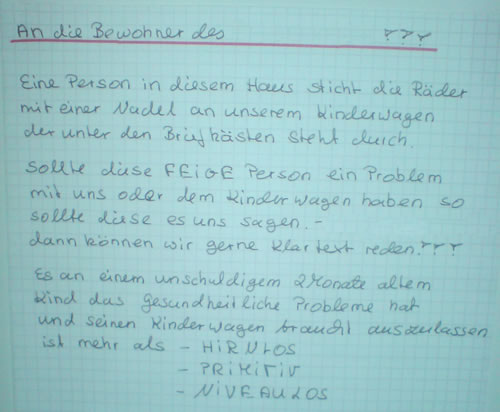 An die Bewohner des ???
Eine Person in diesem Haus sticht die Räder
mit einer Nadel an unserem Kinderwagen
der unter den Briefkästen steht durch.
Sollte diese FEIGE Person ein Problem
mit uns oder dem Kinderwagen haben so
sollte diese es uns sagen.-
dann können wir gerne Klartext reden.???
Es an einem unschuldigem 2 Monate altem
Kind das gesundheitliche Probleme hat
und seinen Kinderwagen braucht auszulassen
ist mehr als - HIRNLOS
- PRIMITIV
- NIVEAULOS